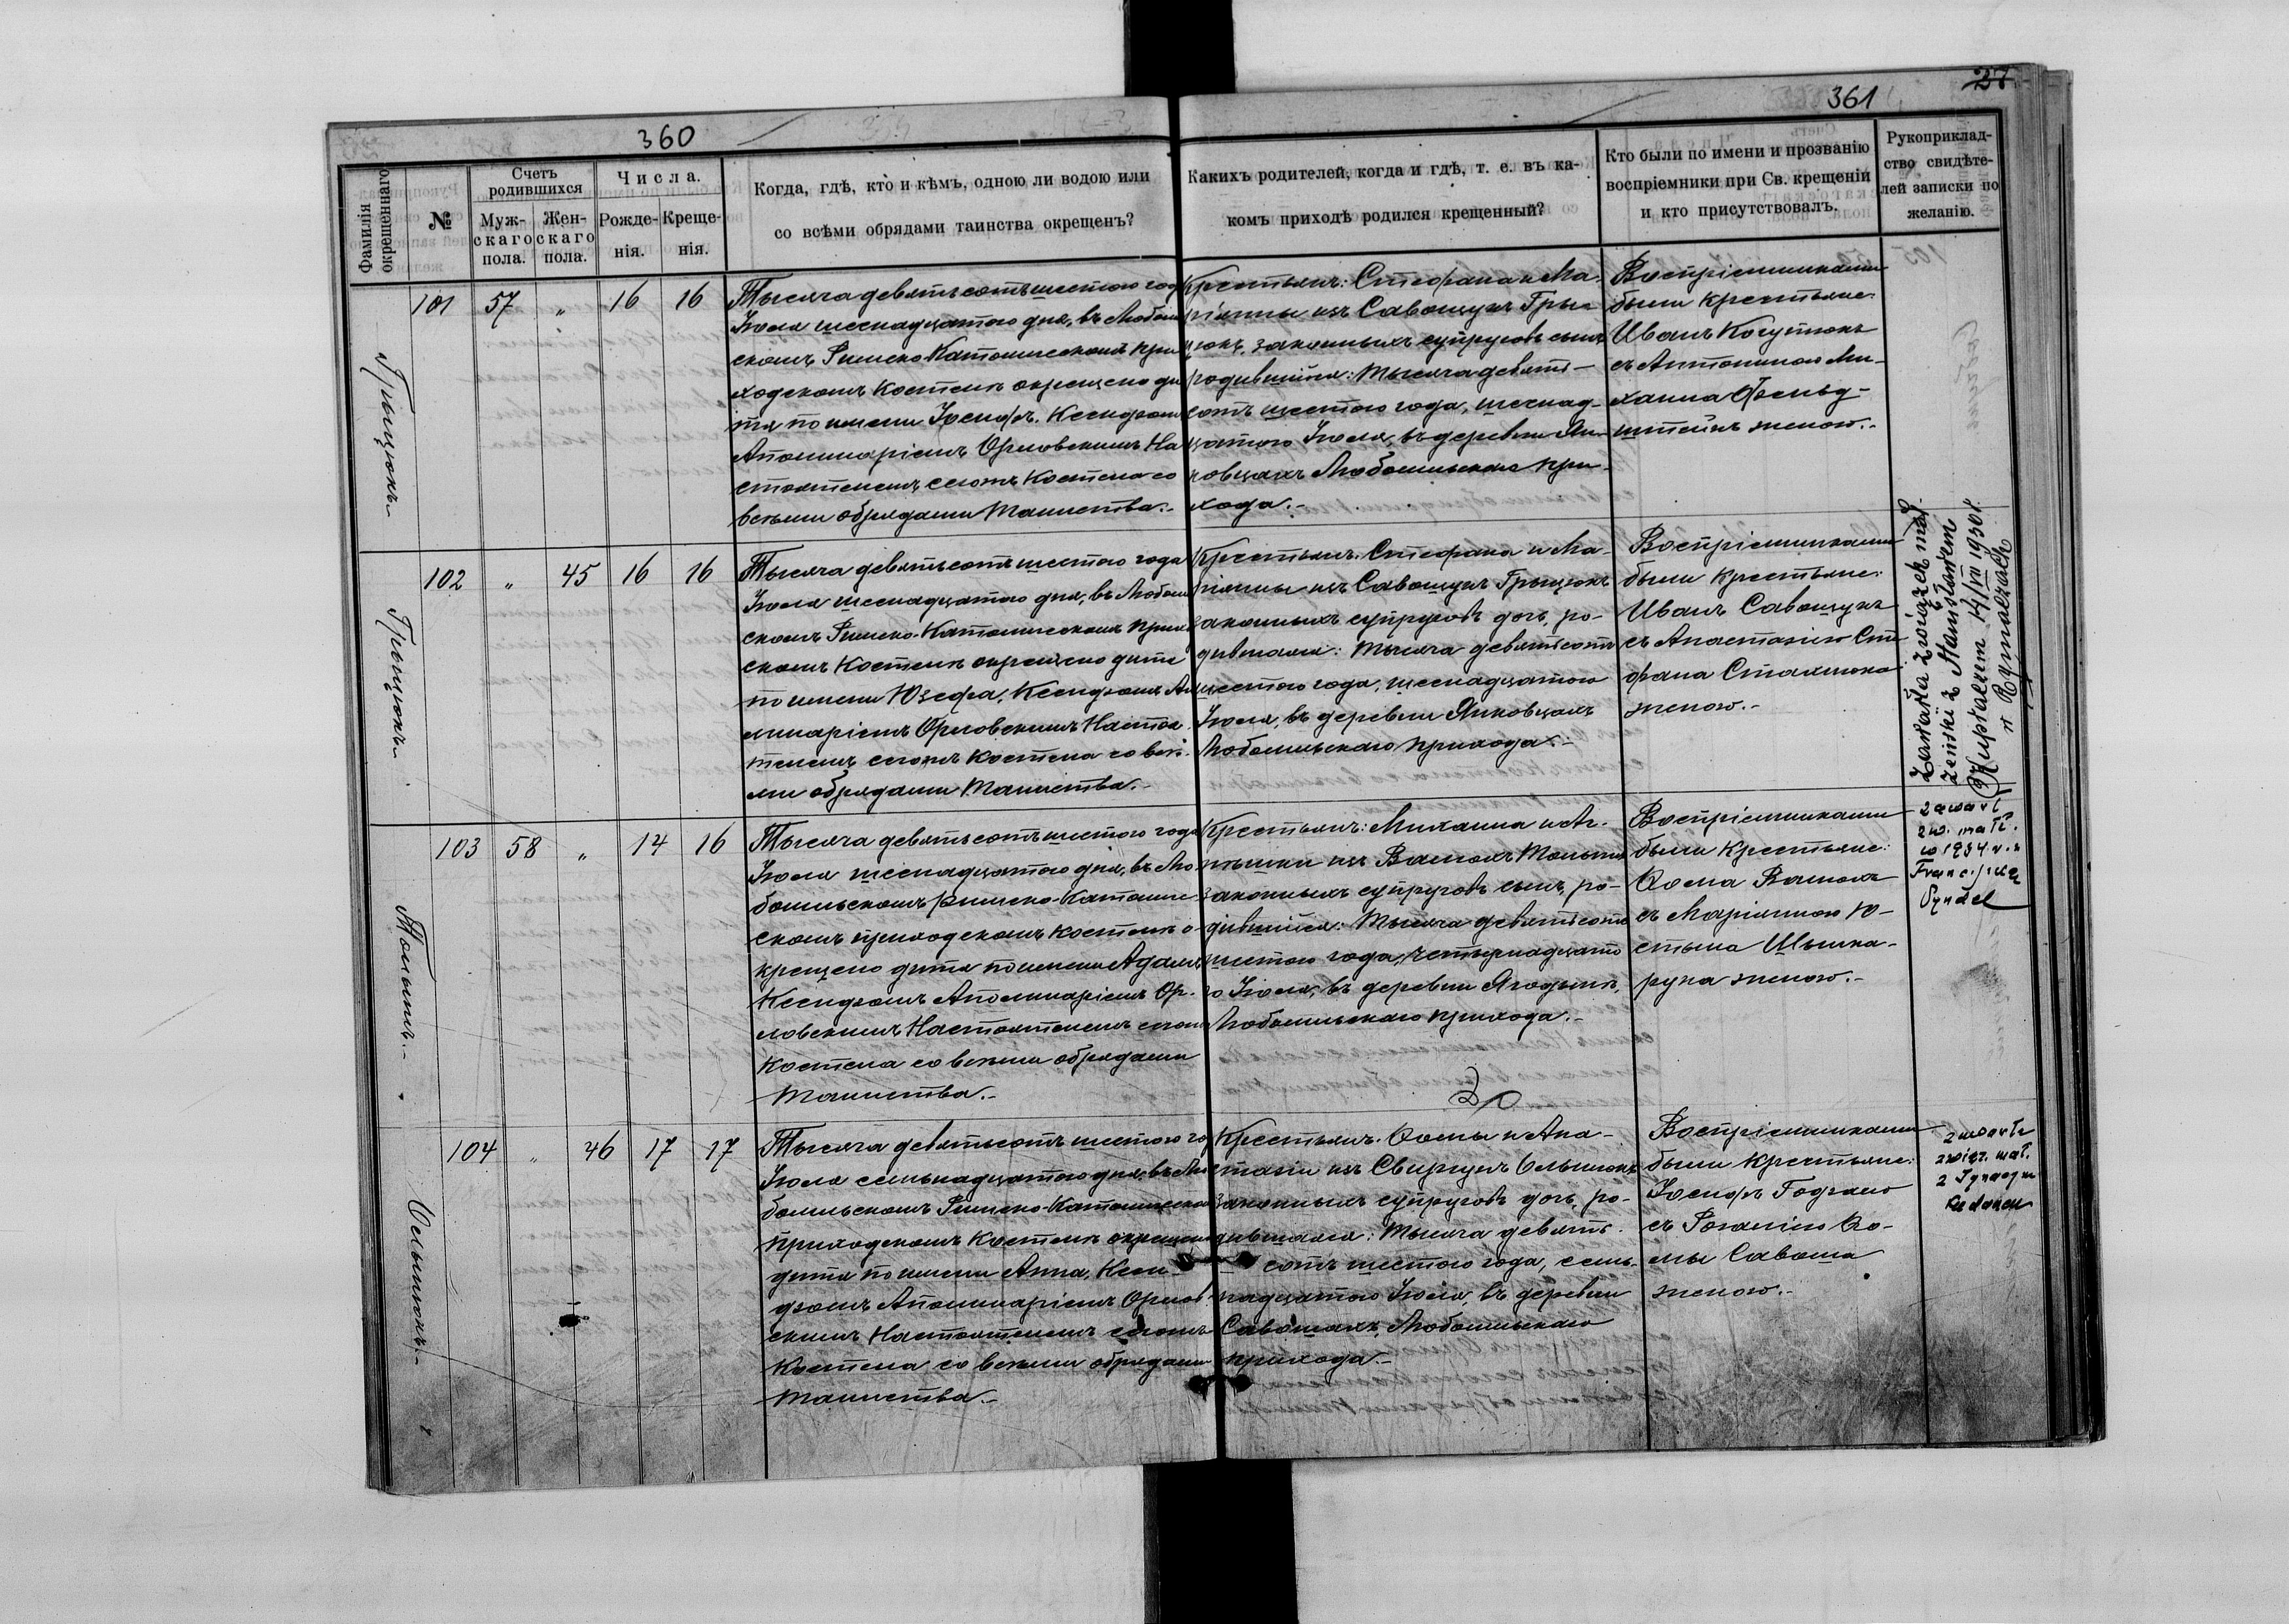 360
361
27
Фамилія
окрещеннаго
№
Счетъ
родившихся
Муж-
скаго
пола.
Жен-
скаго
пола.
Числа.
Рожде-
нія.
Креще-
нія.
Когда, гдѣ, кто и кѣмъ, одною ли водою или
со всѣми обрядами таинства окрещенъ?
Какихъ родителей, когда и гдѣ, т. е. въ ка-
комъ приходѣ родился крещенный?
Кто были по имени и прозванію
воспріемники при Св. крещеніи
и кто присутствовалъ.
Рукоприклад-
ство свидѣте-
лей записки по
желанію.
Грыцюкъ
101 57 „ 16 16
Тысяча девятьсотъ шестого год
Іюля шеснадцатого дня, въ Любом
скомъ Римско-Католическомъ При
ходскомъ Костелѣ окрещено ди
тя по имени Іосифъ, Ксендзомъ
Аполинаріемъ Орловскимъ На
стоятелемъ сегожъ Костела со
всѣми обрядами Таинства.-
Крестьянъ: Стефана и Ма-
ріанны изъ Савощукъ Гры-
цюкъ, законныхъ супруговъ сынъ
родившійся: Тысяча девять-
сотъ шестого года, шеснад-
цатого Іюля, въ деревни Ян-
ковцахъ Любомльскаго при-
хода.-
Воспріемниками
были Крестьяне:
Иванъ Когутюкъ
съ Антониною Ми-
хаила Фельд-
штейнъ женою.-
Грыцюкъ
102 „ 45 16 16
Тысяча девятьсотъ шестого года
Іюля шеснадцатого дня, въ Любом
скомъ Римско-Католическомъ Прих
скомъ Костелѣ окрещено дитя
по имени Юзефа, Ксендзомъ Апо
линаріемъ Орловскимъ Настоя
телемъ сегожъ Костела со всѣ-
ми обрядами Таинства.-
Крестьянъ: Стефана и Ма-
ріянны изъ Савощукъ Грыцюкъ
законныхъ супруговъ дочь, ро-
дившаяся: Тысяча девятьсотъ
шестого года, шеснадцатого
Іюля, въ деревни Янковцахъ
Любомльскаго прихода.-
Воспріемниками
были Крестьяне:
Иванъ Савощукъ
съ Анастасіею Сте
фана Стахнюка
женою.-
Zawarła związek mał-
żeński z Stanisławem
14/VII 1930 r.
w Rymaczach
103 58 „ 14 16
Тысяча девятьсотъ шестого года
Іюля шеснадцатого дня, въ Лю
бомльскомъ Римско-Католиче-
скомъ Приходскомъ Костелѣ о-
крещено дитя по имени Адамъ,
Ксендзомъ Аполинаріемъ Ор-
ловскимъ Настоятелемъ сегожъ
Костела со всѣми обрядами
Таинства.-
Крестьянъ: Михаила и Аг-
законныхъ супруговъ сынъ, ро-
дившійся: Тысяча девятьсотъ
шестого года, четырнадцато
го Іюля, въ деревни Ягодынѣ,
Любомльскаго прихода.-
Воспріемниками
были Крестьяне:
съ Маріянною Ю-
стына Шышка-
рука женою.-
zawarł
zw. małż.
w 1934 r. z
Franciszką
104 „ 46 17 17
Тысяча девятьсотъ шестого го
Іюля семьнадцатого дня, въ Лю
бомльскомъ Римско-Католическом
Приходскомъ Костелѣ окрещено
дитя по имени Анна, Ксен-
дзомъ Аполинаріемъ Орлов-
скимъ Настоятелемъ сегожъ
Костела со всѣми обрядами
Таинства.-
Крестьянъ: Ѳомы и Ана-
стасіи изъ
законныхъ супруговъ дочь, ро-
дившаяся: Тысяча девять-
сотъ шестого года, семь-
надцатого Іюля, въ деревни
Савошахъ, Любомльскаго
прихода.-
Воспріемниками
были Крестьяне:
Іосифъ
съ Розаліею Ѳо-
мы Саваша
женою.-
zawarła
związ. mał.
z Ignacym